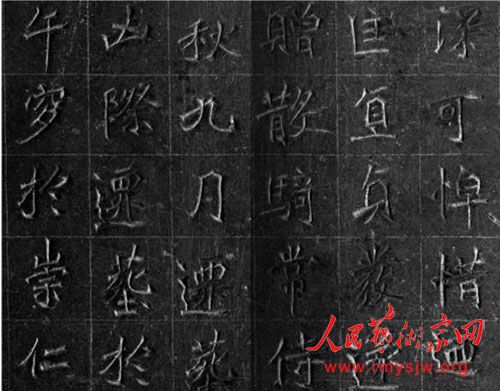 深可悼惜
匡宜
贈散騎常侍
秋九月遷葬
際遷於
午窆於崇仁
人民藝術家网
www.rmysjw.org